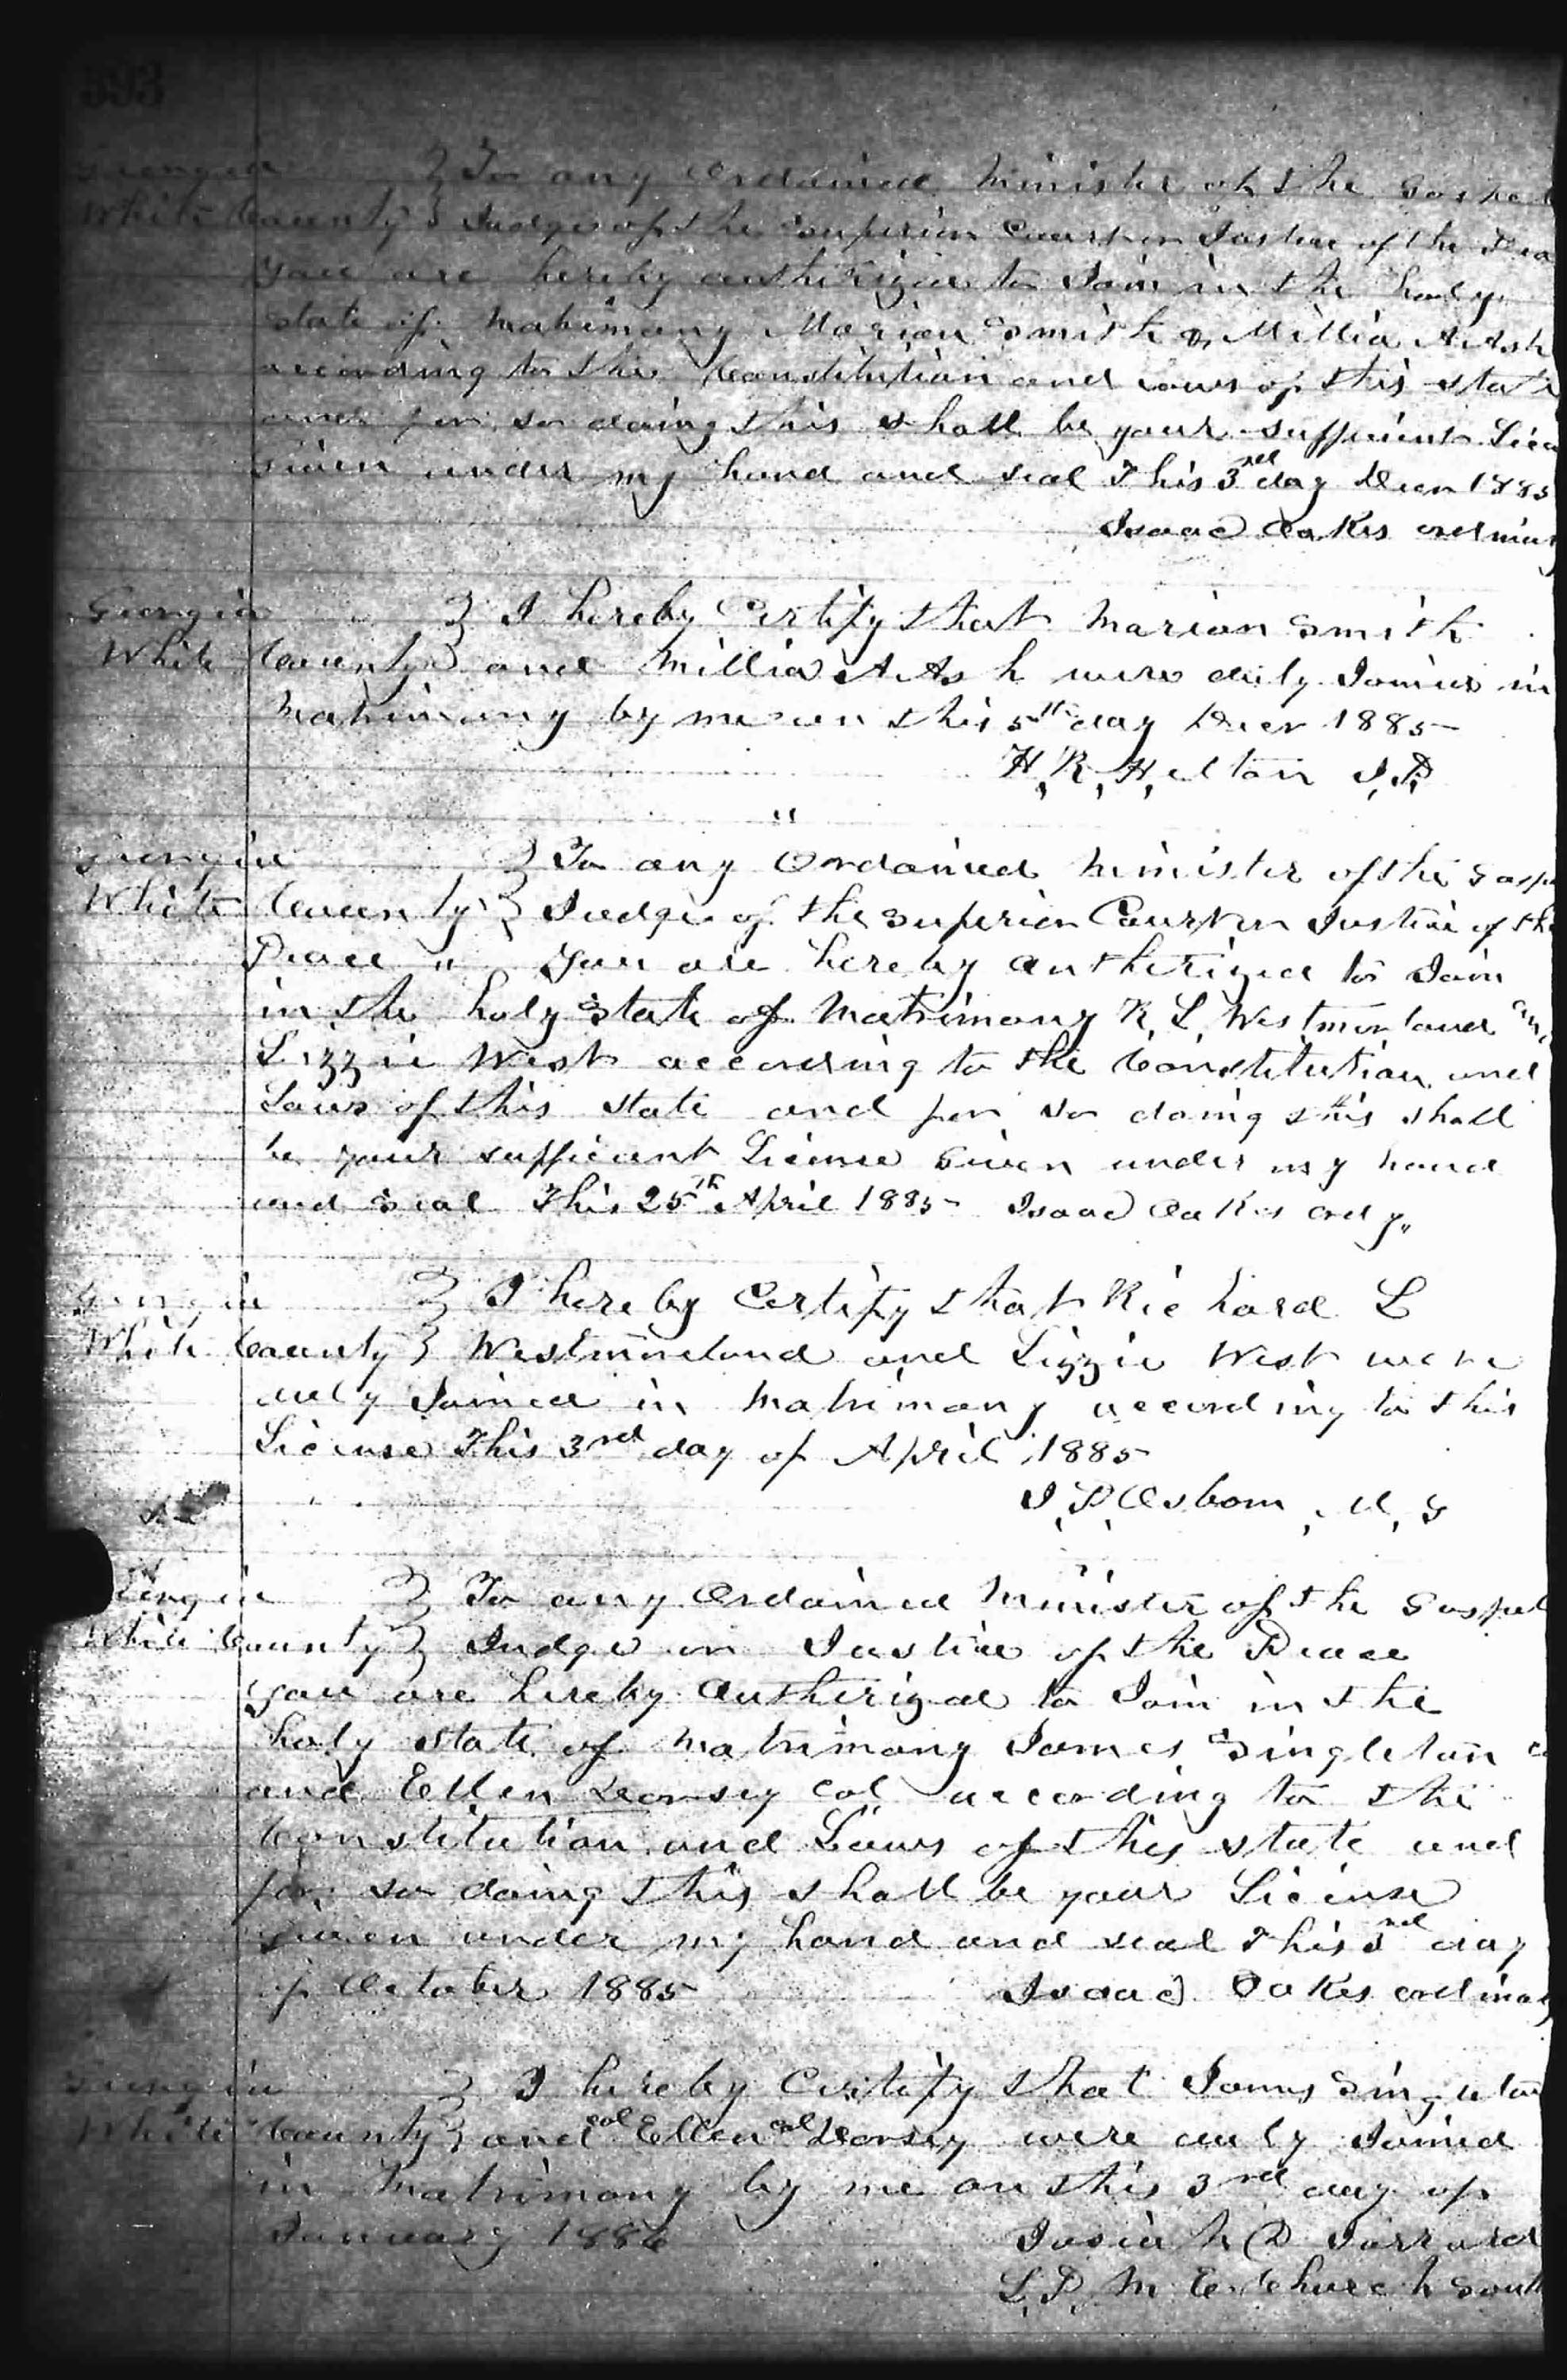 393
Georgia } To any Ordained Minister of the Gospel
White County } Judge of the Superior Court or Justice of the Pea
you are hereby authorized to Join in the holy
state of Matrimony Marion Smith & Millia A Ash
according to the Constitution and Laws of this state
and for so doing this shall be your sufficient Lice
Given under my hand and seal This 3rd day Decr 1885
Isaac Oakes ordinary
Georgia } I hereby Certify that Marion Smith
White County } and Millia A Ash were duly Joined in
Matrimony by me on this 5th day Decr 1885
H, R, Helton J, P,
"
Georgia } To any Ordained Minister of the Gospe
White County } Judge of the Superior Court or Justice of the
Peace " You are hereby authorized to Join
in the holy State of Matrimony R, L, Westmorland and
Lizzie West according to the Constitution and
Laws of this state and for so doing this shall
be your sufficient License Given under my hand
and seal This 25th April 1885 Isaac Oakes ordy"
Georgia } I hereby Certify that Richard L
White County } Westmoreland and Lizzie West were
duly Joined in Matrimony according to this
License This 3rd day of April 1885
J, P, Osborn, M, G
Georgia } To any Ordained Minister of the Gospel
White County } Judge or Justice of the Peace
you are hereby authorized to Join in the
holy state of Matrimony James Singleton
and Ellen Dorsey col according to the
Constitution and Laws of this state and
for so doing this shall be your License
Given under my hand and seal This 3rd day
of October 1885 Isaac Oakes ordinary
Georgia } I hereby Certify that James Singleton
White County } and col Ellen col Dorsey were duly Joined
in Matrimony by me on this 3rd day of
January 1886 Josiah D Jarrard
L, P, M. E. Church South